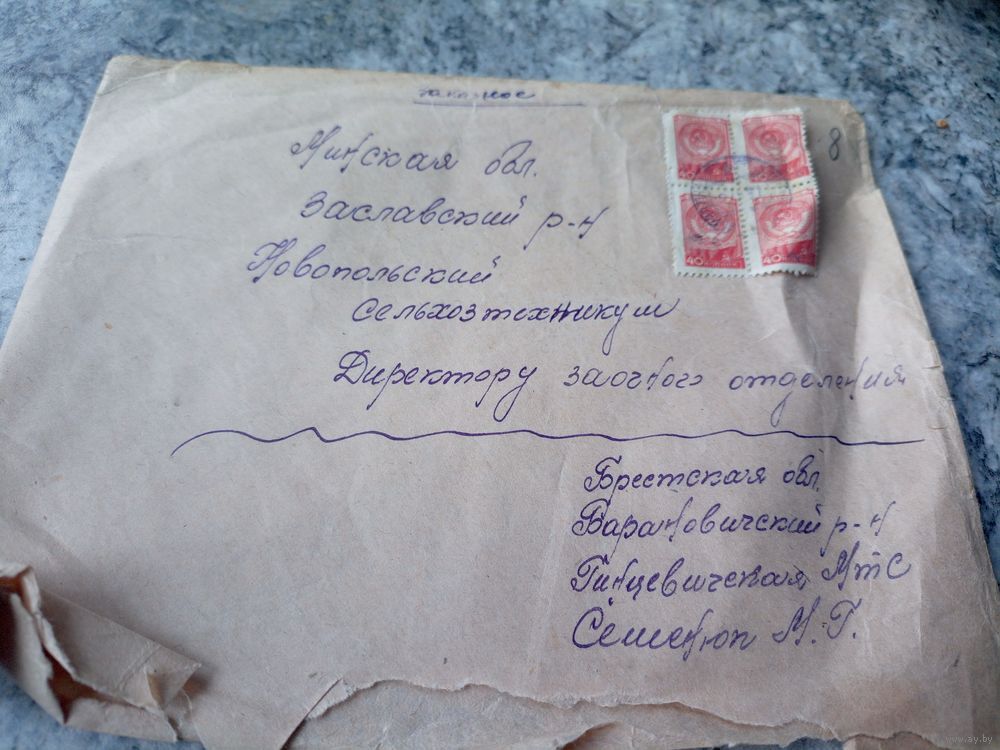 заказное
Минская обл.
Заславский р-н
Новопольский
сельхозтехникум
Директору заочного отделения
40
40
8
Брестская обл.
Барановичский р-н
Гинцевичская МТС
Семенюк М.Г.
www.ay.by